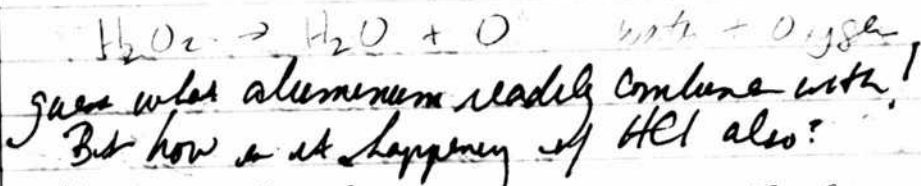 H2O2 → H2O + O water + Oxygen
guess what aluminum readily combine with!
But how is it happening w/ HCl also?